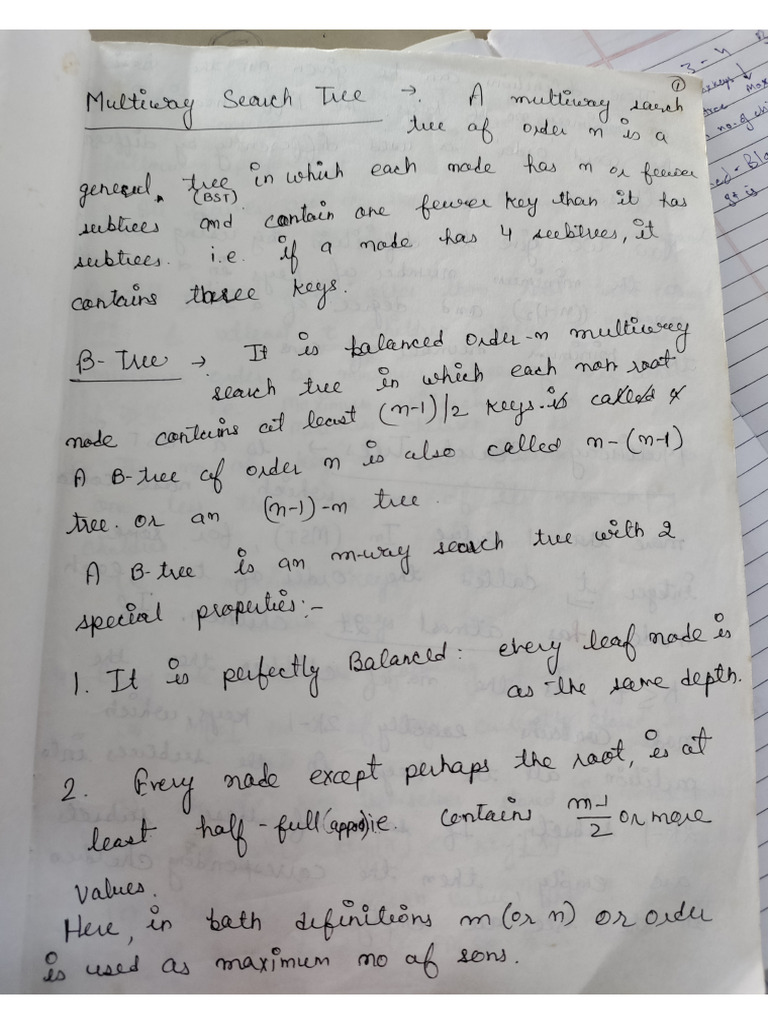 ①
Multiway Search Tree → . A multiway search
tree of order n is a
general tree in which each node has n or fewer
(BST)
subtrees and contain one fewer key than it has
subtrees. i.e. if a node has 4 subtrees, it
contains three keys.
B-Tree → It is balanced order-n multiway
search tree in which each non root
node contains at least (n-1)/2 keys. is called
A B-tree of order n is also called n-(n-1)
tree. or an (n-1)-n tree.
A B-tree is an m-way search tree with 2
special properties:-
1. It is perfectly Balanced: every leaf node is
as the same depth.
2. Every node except perhaps the root, is at
least half-full (approx) i.e. contains m-1/2 or more
values.
Here, in both definitions m (or n) or order
is used as maximum no of sons.
3-4
max